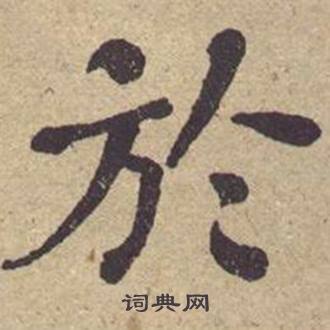 於
词典网